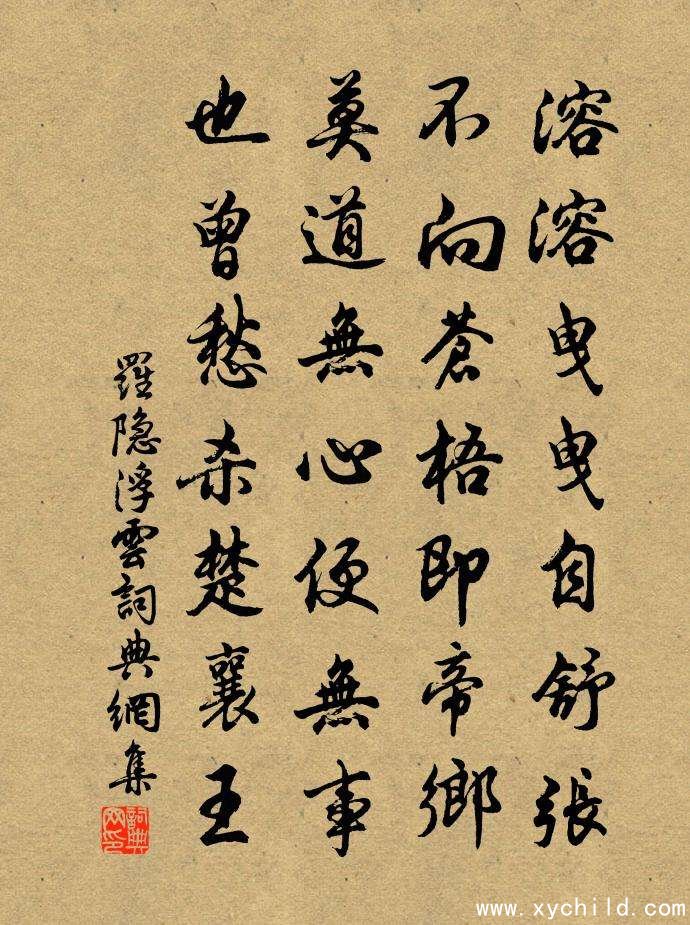 溶溶曳曳自舒張
不向蒼梧即帝鄉
莫道無心便無事
也曾愁杀楚襄王
羅隐浮雲詞典網集
詞典网印
www.xychild.com